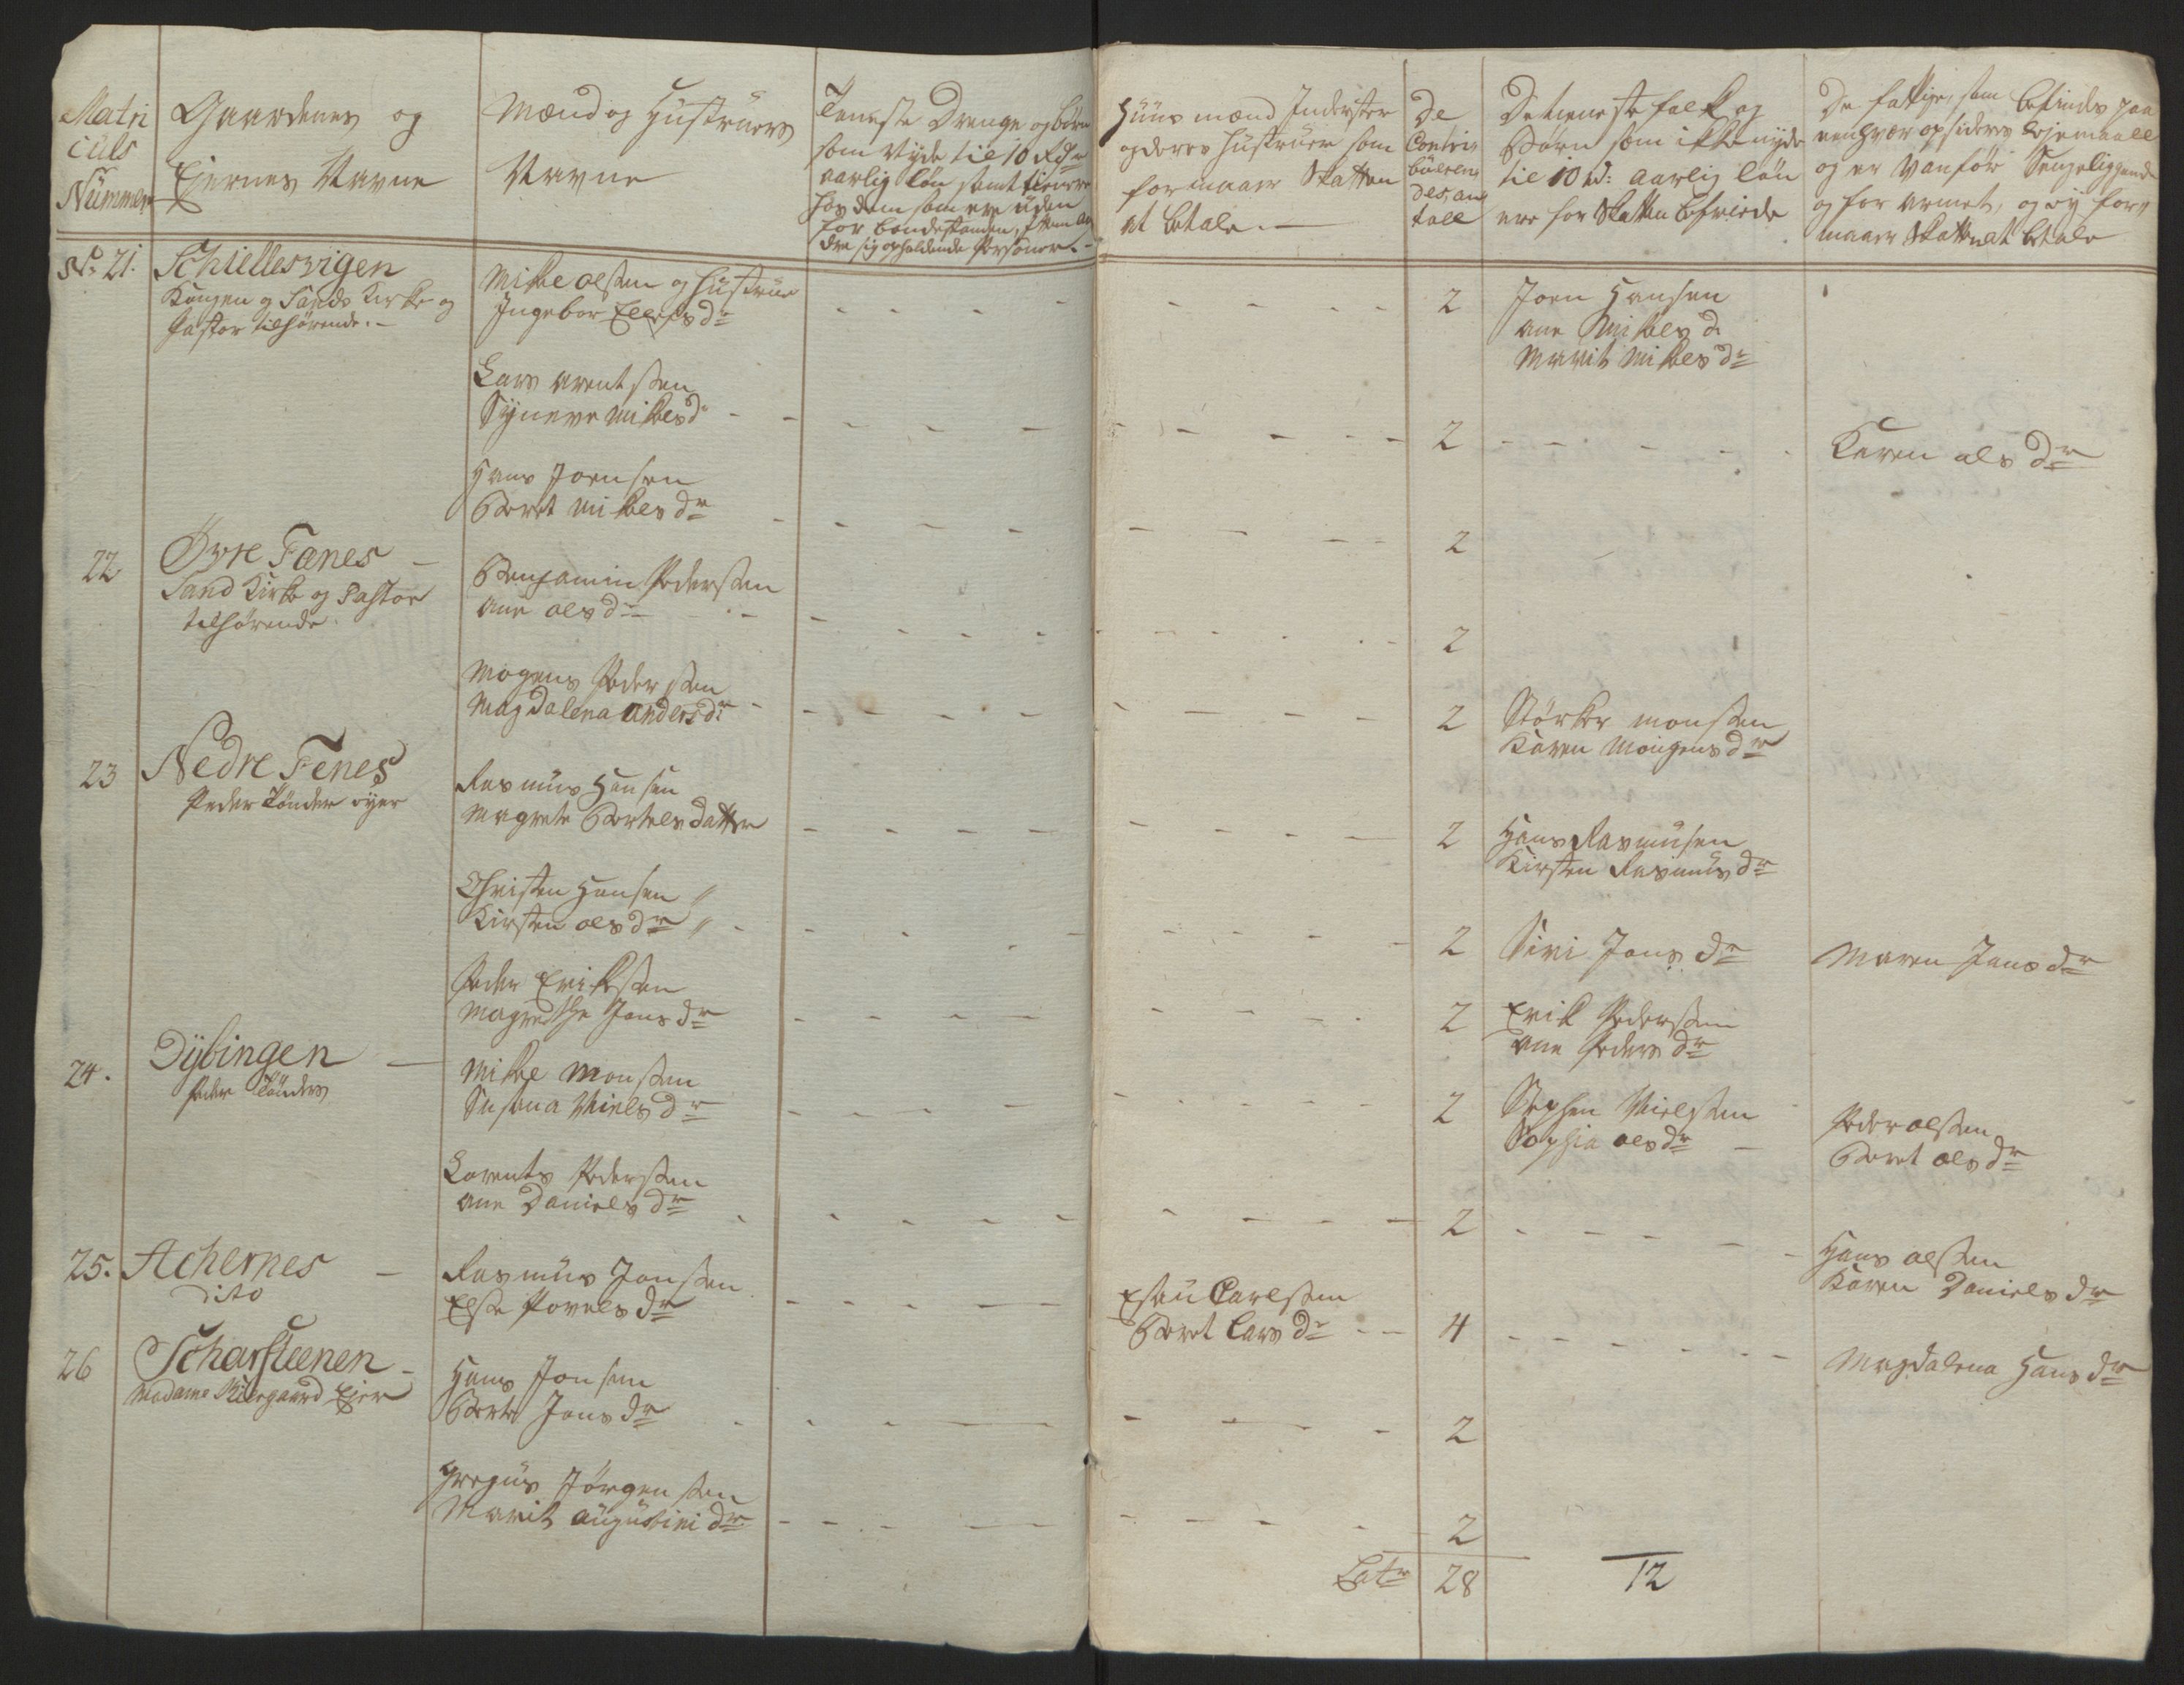 Matri
culs
Nummer
Gaardenes og
Ejernes Navne
Mænd og Hustruers
Navne
Teneste Drenge og børn
som Nyde til 10 Rdr
aarlig løn samt tienere
hos dem som ere uden
for bondestanden, Item an
dre sig opholdende Personer.-
Huus mænd Inderster
og deres Hustruer som
formaaer Skatten
at betale.-
De
Contri
bueren
des an
tall
De tieneste folk og
Børn som ikke nyde
til 10 rd: aarlig løn
ere for Skatten befriede
De fattige, som befindes paa
een hver opsideres lejemaall
og er Vanför Sengeliggende
og for armet, og ey for
maaer Skatten at betale
No: 21. Schiellesvigen
Kongen og Sands Kirke og
Pastor tilhörende.-
Mikel olsen og Hustrue
Ingebor Ellefsdr
2
Joen Hansen
ane Mikels dr
Marit Mikelsdr
Lars arentsen
Synneve Mikelsdr
2
Karen olsdr
Hans Joensen
Beret Mikelsdr
2
22 Øvre Fanes
Sand Kirke og Pastor
tilhörende.
Benjamin Pedersen
ane olsdr
2
Mogens Pedersen
Magdalena andersdr
2
Störker monsen
Karen Mongensdr
23 Nedre Fenes
Peder Tönder eyer
Rasmus Hansen
Magrete Bertelsdatter
2
Hans Rasmusen
Kirsten Rasmusdr
Christen Hansen
Kirsten olsdr
2
Siri Jonsdr
Maren Jansdr
Peder Eriksen
Magrethe Jonsdr
2
Erik Pedersen
ane Pedersdr
24. Dybingen
Peder Tönders
Mikel Monsen
Susana Nielsdr
2
Stephen Nielsen
Sophia olsdr
Peder olsen
Beret olsdr
Lorents Pedersen
ane Danielsdr
2
Hans olsen
Karen Danielsdr
25. Achernes
dito
Rasmus Jonsen
Else Povelsdr
Esau Carlsen
Beret Larsdr
4
Magdalena Hansdr
26 Scharsteenen
Madame Kiergaard Ejer
Hans Jonsen
Berte Jonsdr
2
Gregus Jörgensen
Marit augustinidr
2
Latr 28
12